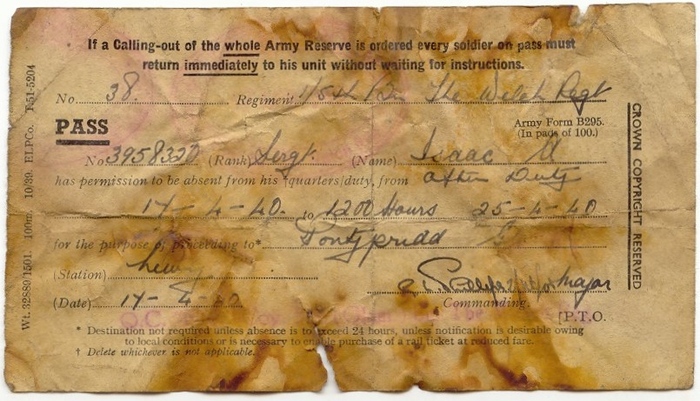 If a Calling-out of the whole Army Reserve is ordered every soldier on pass must
return immediately to his unit without waiting for instructions.
No. 38. Regiment 1/5th Bn The Welch Regt
PASS
Army Form B295.
(In pads of 100.)
No. 3958320 (Rank) Sergt. (Name) Isaac
has permission to be absent from his *quarters/duty, from after Duty
17-4-40. to 1200 Hours 25-4-40
for the purpose of proceeding to* Pontypridd
(Station)
(Date) 17-4-40 Major
Commanding.
[P.T.O.
* Destination not required unless absence is to exceed 24 hours, unless notification is desirable owing
to local conditions or is necessary to enable purchase of a rail ticket at reduced fare.
† Delete whichever is not applicable.
Wt. 32580/1501. 100m. 10/39. ELPCo. P51-5204
CROWN COPYRIGHT RESERVED